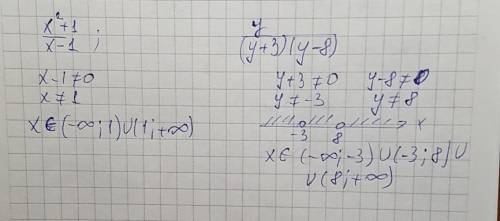 x²+1
x-1 ;
x-1≠0
x≠1
x∈(-∞;1)∪(1;+∞)
y
(y+3)(y-8)
y+3≠0 y-8≠0
y≠-3 y≠8
-3 8 x
x∈(-∞;-3)∪(-3;8)∪
∪(8;+∞)